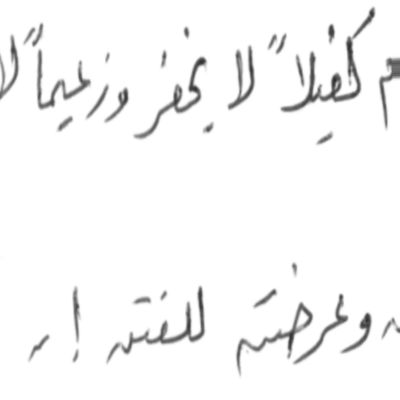 كفيلاً لا يخفر وزعيماً لا
وعرضته للفتنة إن